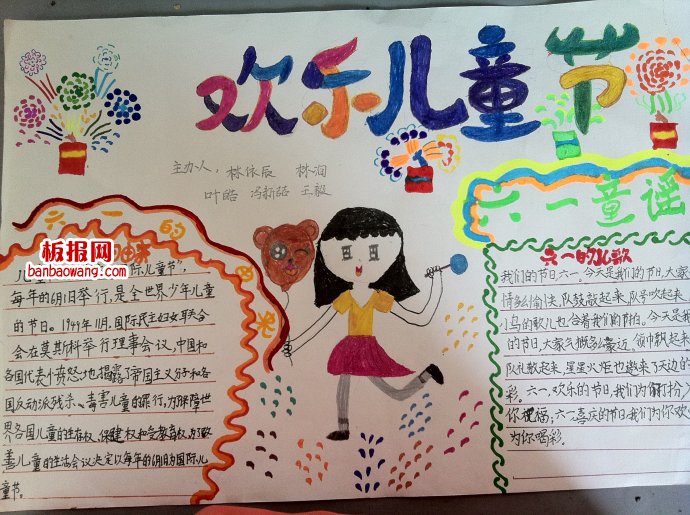 欢乐儿童节
主办人: 林依辰 林润
叶皓 冯新强 王毅
六一的由来
板报网
banbaowang.com
儿童节",
每年的6月1日举行,是全世界少年儿童
的节日。1949年11月,国际民主妇女联合
会在莫斯科举行理事会议,中国和
各国代表愤怒地揭露了帝国主义分子和各
国反动派残杀、毒害儿童的罪行,为保障世
界各国儿童的生存权、保健权和受教育权,为改
善儿童的生活会议决定以每年的6月1日为国际儿
童节。
六一童谣
六一的儿歌
我们的节日六一。今天是我们的节日,大家
情绪愉快,队鼓敲起来,队号吹起来
小鸟的歌儿也合着我们的节拍。今天是我
的节日,大家气概多豪迈,领巾飘起来
队礼敬起来,星星火炬也映来了天边的
彩。六一,欢乐的节日,我们为你打扮,
你祝福;六一喜庆的节日,我们为你欢
为你喝彩。